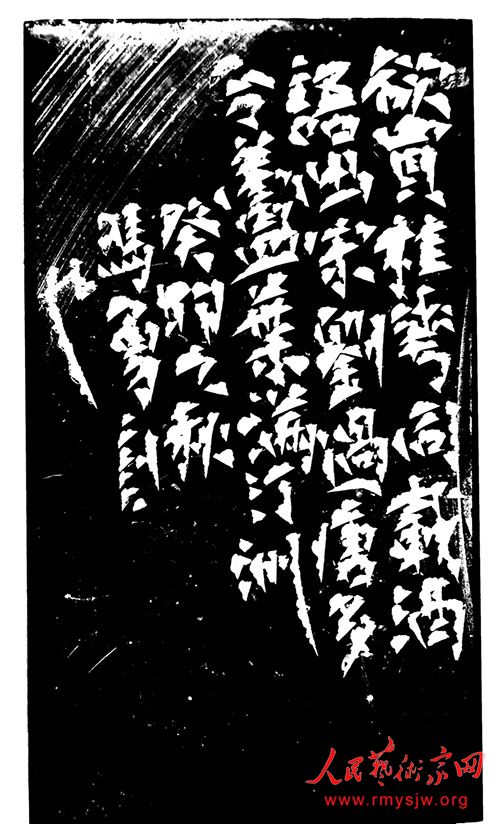 欲買桂華同載酒
語出宋劉過唐多
令蘆葉滿汀洲
癸卯之秋
馮勇刻
人民藝術家网
www.rmysjw.org